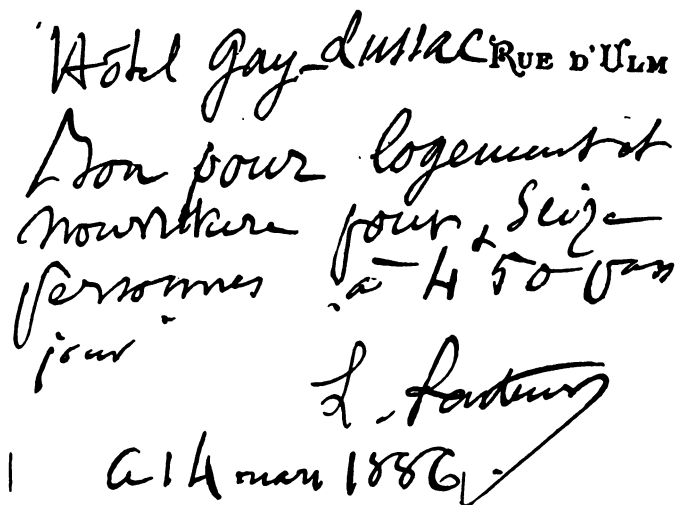 Hôtel Gay-Lussac RUE D'ULM
Bon pour logement et
nourriture pour Seize
personnes à 4 50 par
jour
L. Pasteur
Ce 14 mars 1886